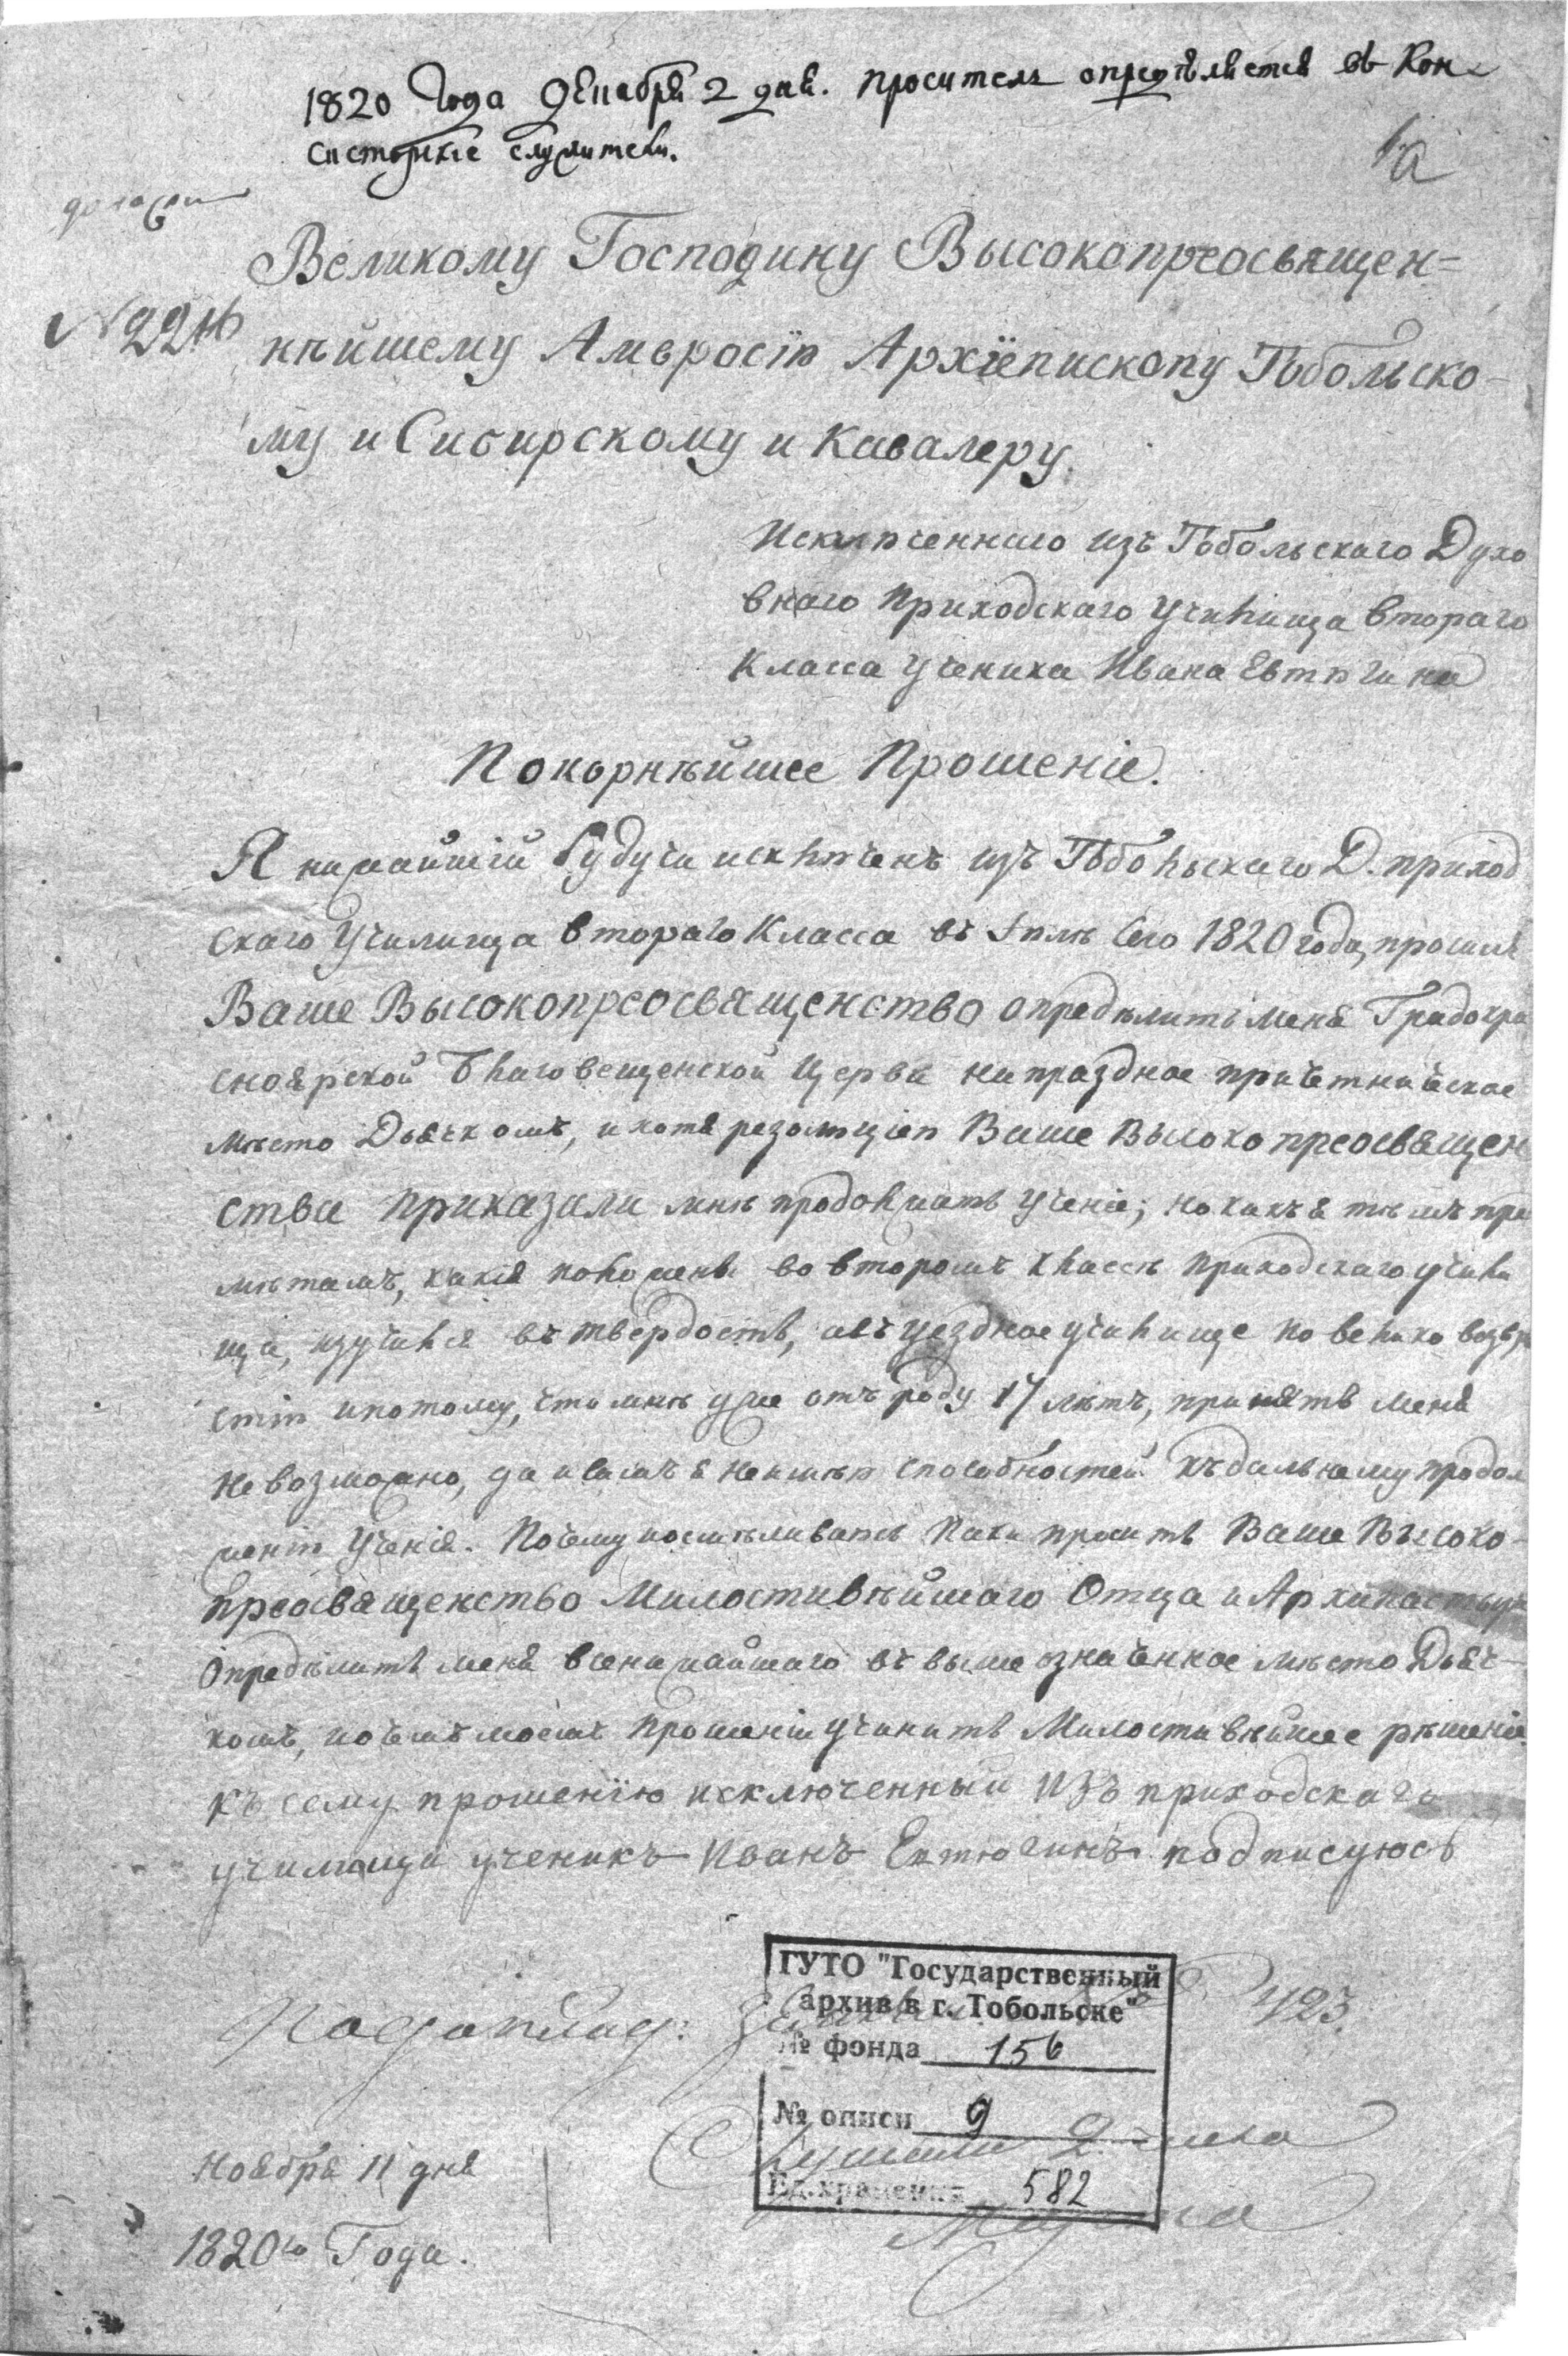 1820 года декабря 2 дня. проситель определяется въ Кон-
систорские служители.
1/а
доложить
№ 22
Великому Господину Высокопреосвящен=
нѣйшему Амвросію Архіепископу Тобольско-
му и Сибирскому и Кавалеру.
Исключеннаго изъ Тобольскаго Духо
внаго Приходскаго училища втораго
класса ученика Ивана Евтюгина
Покорнѣйшее Прошеніе.
Я нижайшій будучи исключенъ изъ Тобольскаго Д. приход
скаго училища втораго класса въ Іюлѣ сего 1820 года, просилъ
Ваше Высокопреосвященство опредѣлить меня Градокра
сноярской Благовещенской церкви на праздное причетническое
мѣсто Дьячкомъ, и хотя резолюціею Ваше Высокопреосвящен
ства приказали мнѣ продолжать ученіе; но какъ я тѣмъ пре
мѣтамъ, какія положены во второмъ классѣ приходскаго учили
ща, изучился въ твердость, а въ уездное училище по велико возра
стію и потому, что мнѣ уже отъ роду 17 лѣтъ, принять меня
не возможно, да и самъ я не имѣю способностей къ дальнему продол
женію ученія. Почему и осмѣливаюсь паки просить Ваше Высоко-
преосвященство Милостивѣйшаго Отца и Архипастыря
опредѣлить меня всенижайшаго въ выше означенное мѣсто Дьяч-
комъ, и о семъ моемъ прошеніи учинить Милостивѣйшее рѣшеніе.
къ сему прошенїю исключенный изъ приходскаго
училища ученикъ Иванъ Евтюгинъ подписуюсь
423.
ГУТО "Государственный
архив в г. Тобольске"
№ фонда 156
№ описи 9
Ед.хранения 582
Ноября 11 дня
1820го Года.